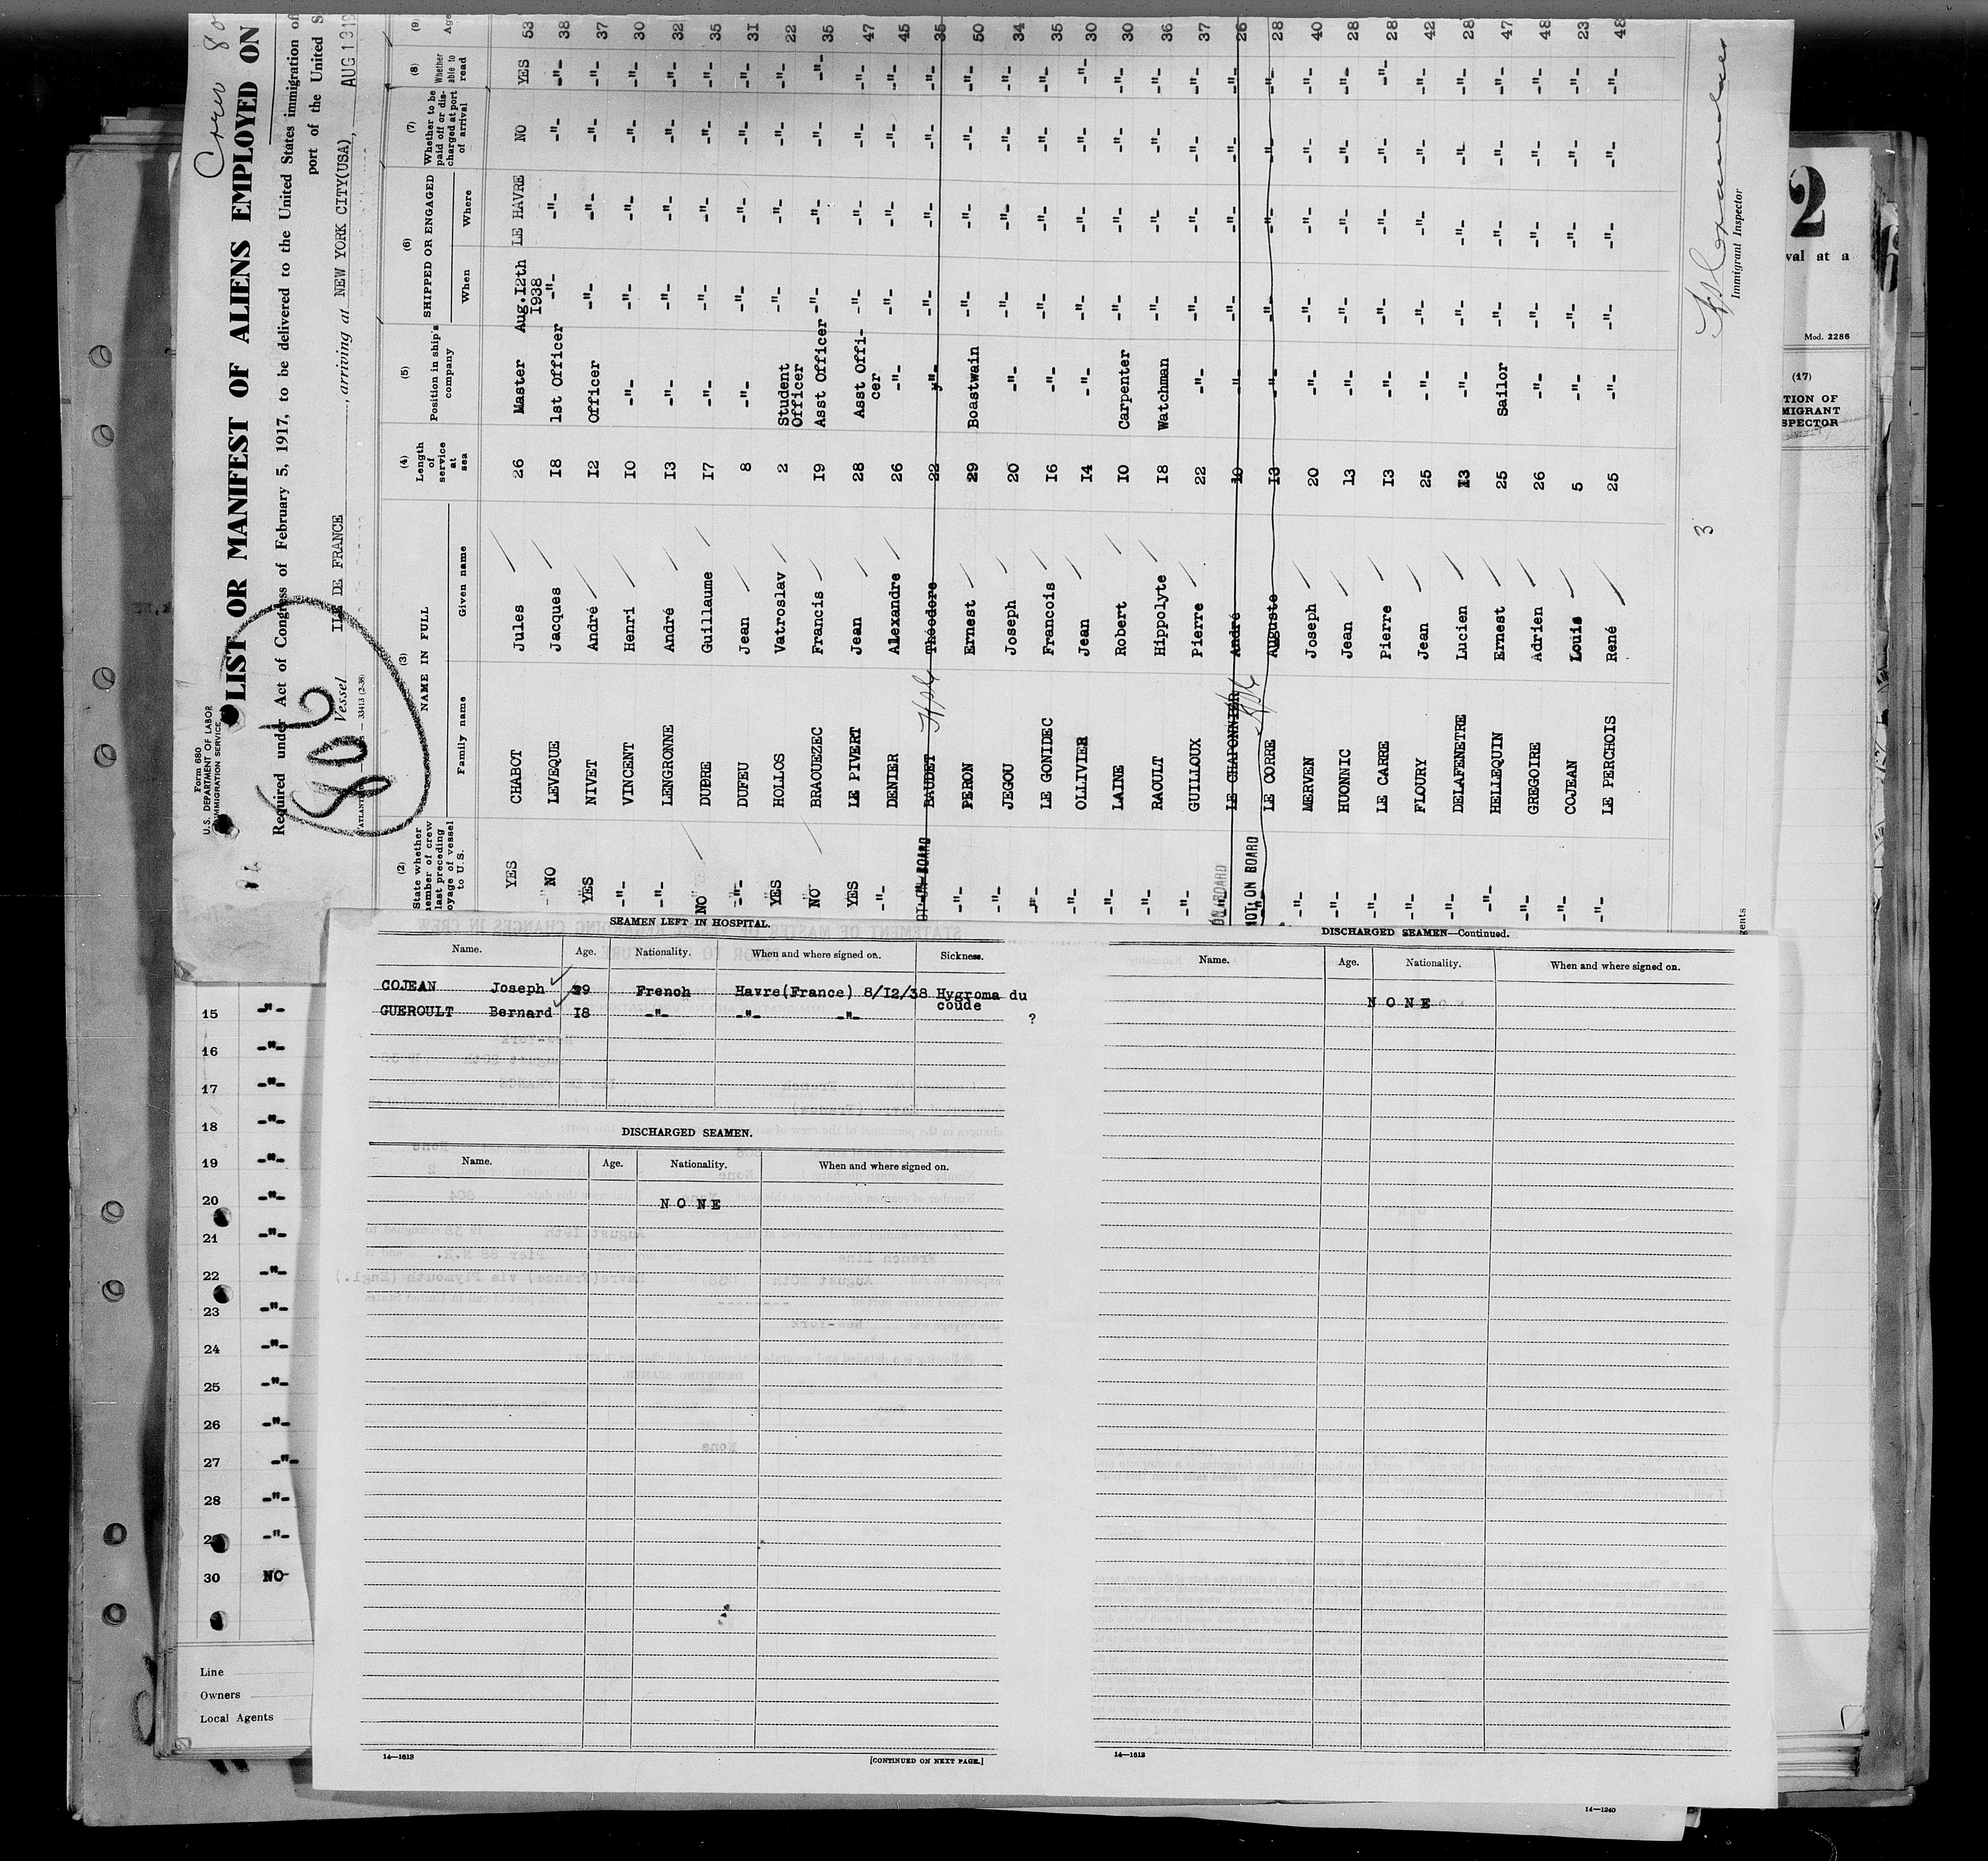 Crew 80
LIST OR MANIFEST OF ALIENS EMPLOYED ON
Form 680
U.S. DEPARTMENT OF LABOR
IMMIGRATION SERVICE
Required under Act of Congress of February 5, 1917, to be delivered to the United States immigration of
port of the United S
Vessel ILE DE FRANCE, arriving at NEW YORK CITY(USA), AUG 1 9 19
806
33413 (2-38)
(2) State whether member of crew last preceding voyage of vessel to U.S.
(3) NAME IN FULL
Family name Given name
(4) Length of service at sea
(5) Position in ship's company
(6) SHIPPED OR ENGAGED
When Where
(7) Whether to be paid off or discharged at port of arrival
(8) Whether able to read
(9) Age
YES CHABOT Jules 26 Master Aug.I2th I938 LE HAVRE NO YES 53
NO LEVEQUE Jacques I8 1st Officer -"- -"- -"- -"- 38
YES NIVET André I2 Officer -"- -"- -"- -"- 37
-"- VINCENT Henri I0 -"- -"- -"- -"- -"- 30
-"- LENGRONNE André I3 -"- -"- -"- -"- -"- 32
NO DUPRE Guillaume I7 -"- -"- -"- -"- -"- 35
-"- DUFEU Jean 8 -"- -"- -"- -"- -"- 3I
YES HOLLOS Vatroslav 2 Student Officer -"- -"- -"- -"- 22
NO BRAOUEZEC Francis I9 Asst Officer -"- -"- -"- -"- 35
YES LE PIVERT Jean 28 Asst Officer -"- -"- -"- -"- 47
-"- DENIER Alexandre 26 -"- -"- -"- -"- -"- 45
OT ON BOARD BAUDET Théodore 22 -"- -"- -"- -"- -"- 35
-"- PERON Ernest 29 Boastwain -"- -"- -"- -"- 50
-"- JEGOU Joseph 20 -"- -"- -"- -"- -"- 34
-"- LE GONIDEC Francois I6 -"- -"- -"- -"- -"- 35
-"- OLLIVIER Jean I4 -"- -"- -"- -"- -"- 30
-"- LAINE Robert I0 Carpenter -"- -"- -"- -"- 30
-"- RAOULT Hippolyte I8 Watchman -"- -"- -"- -"- 36
-"- GUILLOUX Pierre 22 -"- -"- -"- -"- -"- 37
ON BOARD LE CHAPONNIER André I0 -"- -"- -"- -"- -"- 26
NOT ON BOARD LE CORRE Auguste I3 -"- -"- -"- -"- -"- 28
-"- MERVEN Joseph 20 -"- -"- -"- -"- -"- 40
-"- HUONNIC Jean I3 -"- -"- -"- -"- -"- 28
-"- LE CARRE Pierre I3 -"- -"- -"- -"- -"- 28
-"- FLOURY Jean 25 -"- -"- -"- -"- -"- 42
-"- DELAFENETRE Lucien I3 -"- -"- -"- -"- -"- 28
-"- HELLEQUIN Ernest 25 Sailor -"- -"- -"- -"- 47
-"- GREGOIRE Adrien 26 -"- -"- -"- -"- -"- 48
-"- COJEAN Louis 5 -"- -"- -"- -"- -"- 23
-"- LE PERCHOIS René 25 -"- -"- -"- -"- -"- 48
3
Immigrant Inspector
gents
2
val at a
Mod. 2286
(17)
TION OF
MIGRANT
SPECTOR
SEAMEN LEFT IN HOSPITAL.
Name. Age. Nationality. When and where signed on. Sickness.
COJEAN Joseph 29 French Havre(France) 8/I2/38 Hygroma du coude
GUEROULT Bernard I8 -"- -"- -"- ?
DISCHARGED SEAMEN.
Name. Age. Nationality. When and where signed on.
N O N E
14—1613
[CONTINUED ON NEXT PAGE.]
DISCHARGED SEAMEN—Continued.
Name. Age. Nationality. When and where signed on.
N O N E
14—1613
15 -"-
16 -"-
17 -"-
18 -"-
19 -"-
20 -"-
21 -"-
22 -"-
23 -"-
24 -"-
25 -"-
26 -"-
27 -"-
28 -"-
29 -"-
30 NO
Line
Owners
Local Agents
14—1240